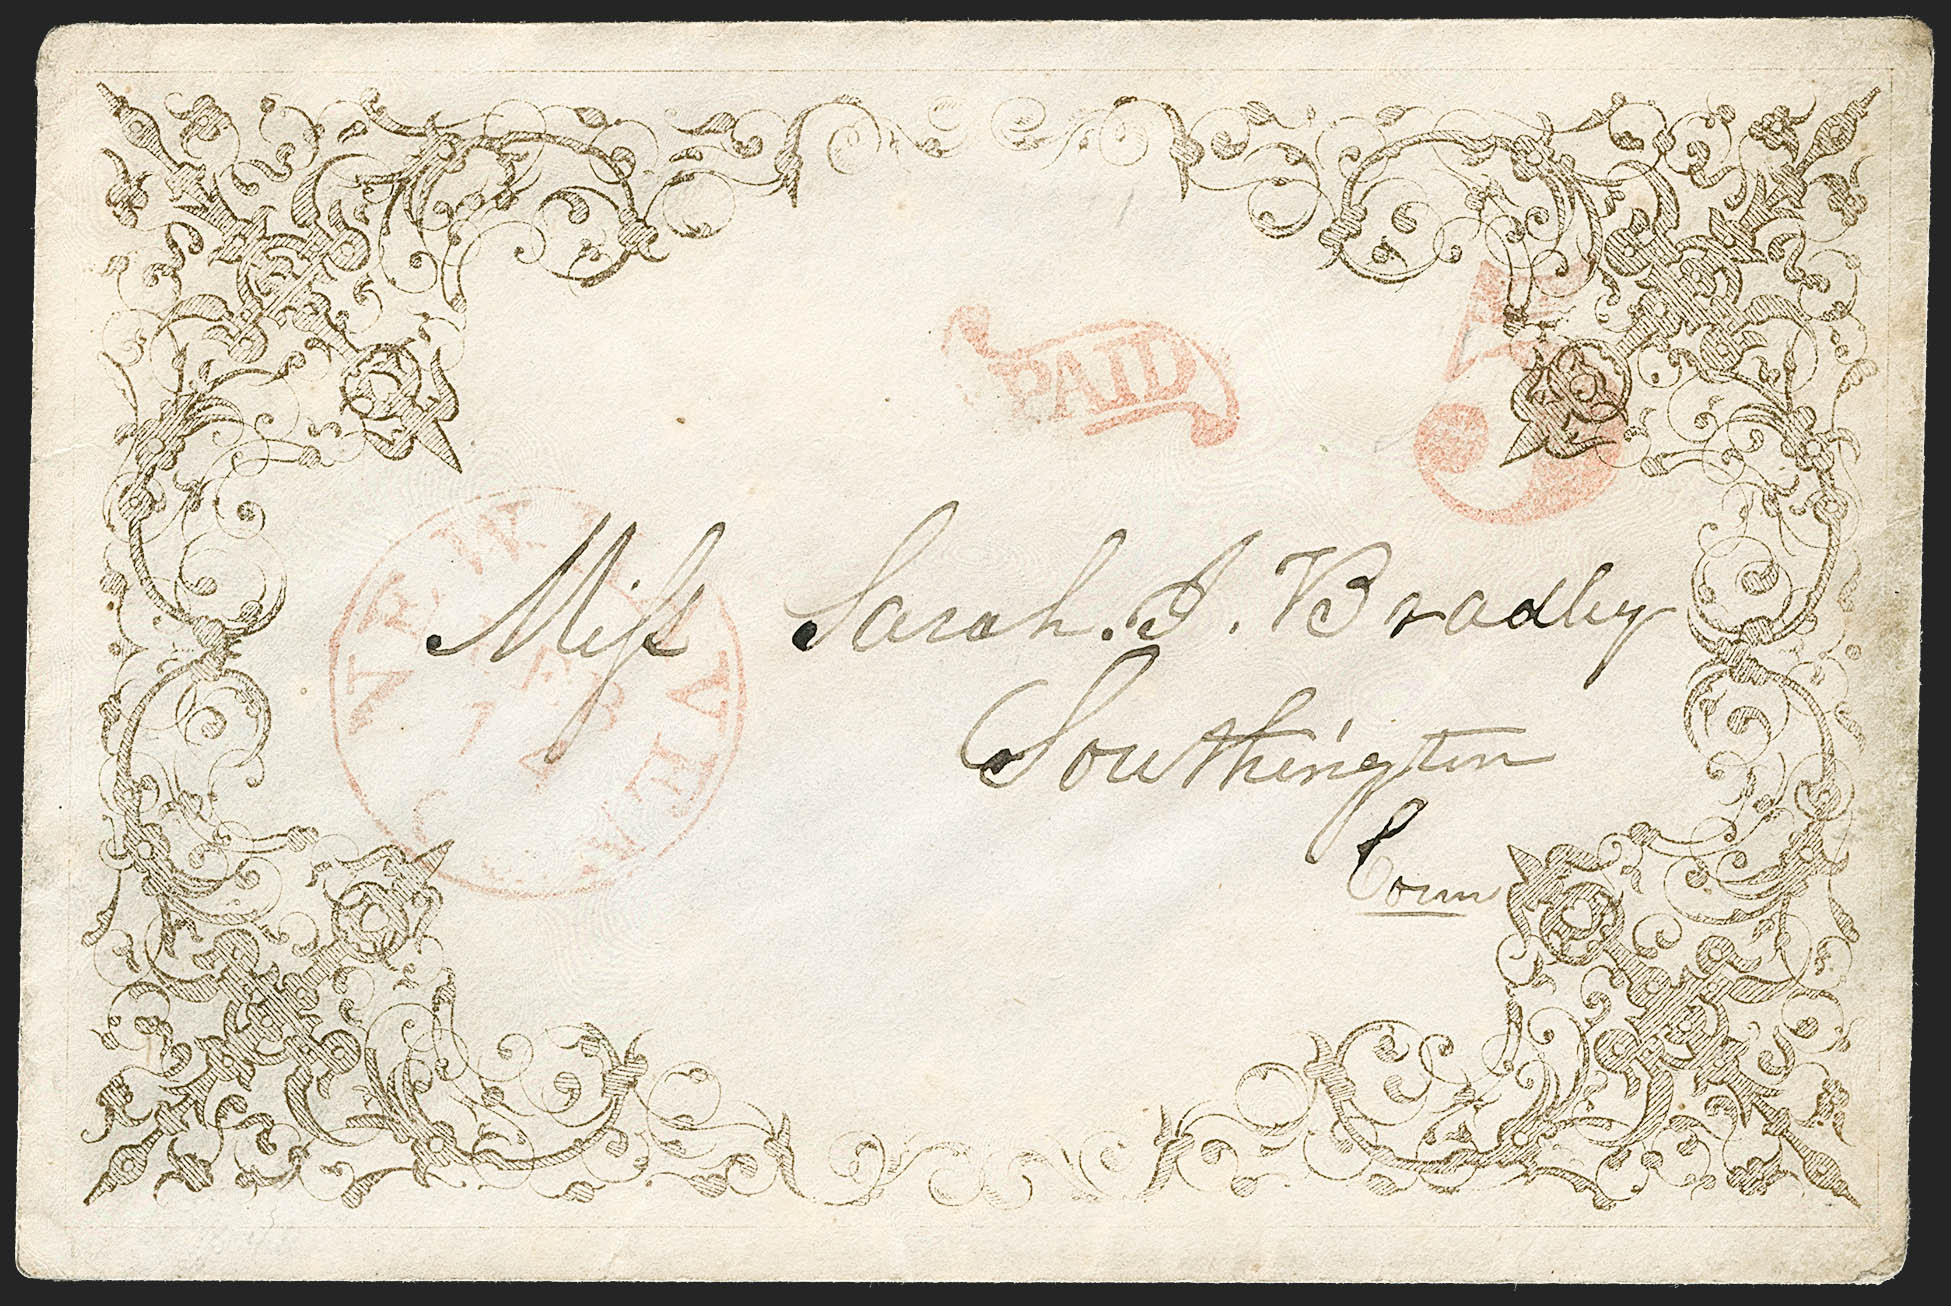 PAID
5
NEW HAVEN
FEB
7
Miſs Sarah. J. Bradley
Southington
Conn